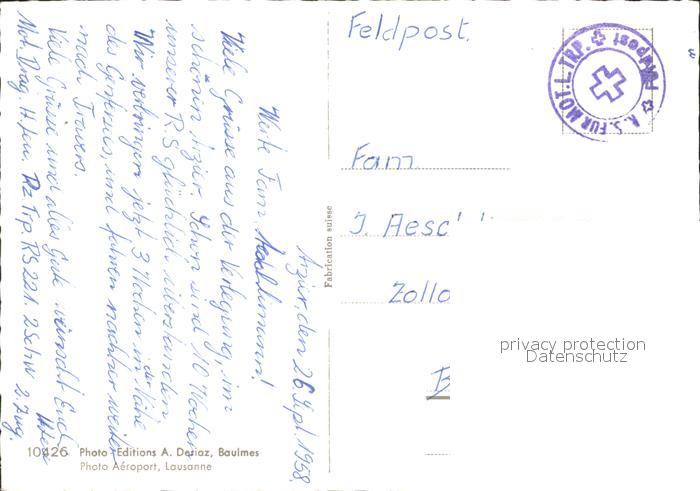 Feldpost.
R. S. FÜR MOT. L. TRP. Feldpost
Fam.
J. Aesc
Zollo
B
privacy protection
Datenschutz
Fabrication suisse
Arzier, den 26. Sept. 1958.
Werte Fam.
Viele Grüsse aus der Verlegung, im
schönen Arzier. Schon sind 10 Wochen
unserer RS glücklich überstanden
Wir verbringen jetzt 3 Wochen in der Nähe
des Genfersees, und fahren nachher weiter
nach Travers.
Viele Grüsse und alles Gute wünscht Euch
Mot. Drag. Pz Trp RS 221. 2 Schw 2. Zug.
10426 Photo-Editions A. Deriaz, Baulmes
Photo Aéroport, Lausanne